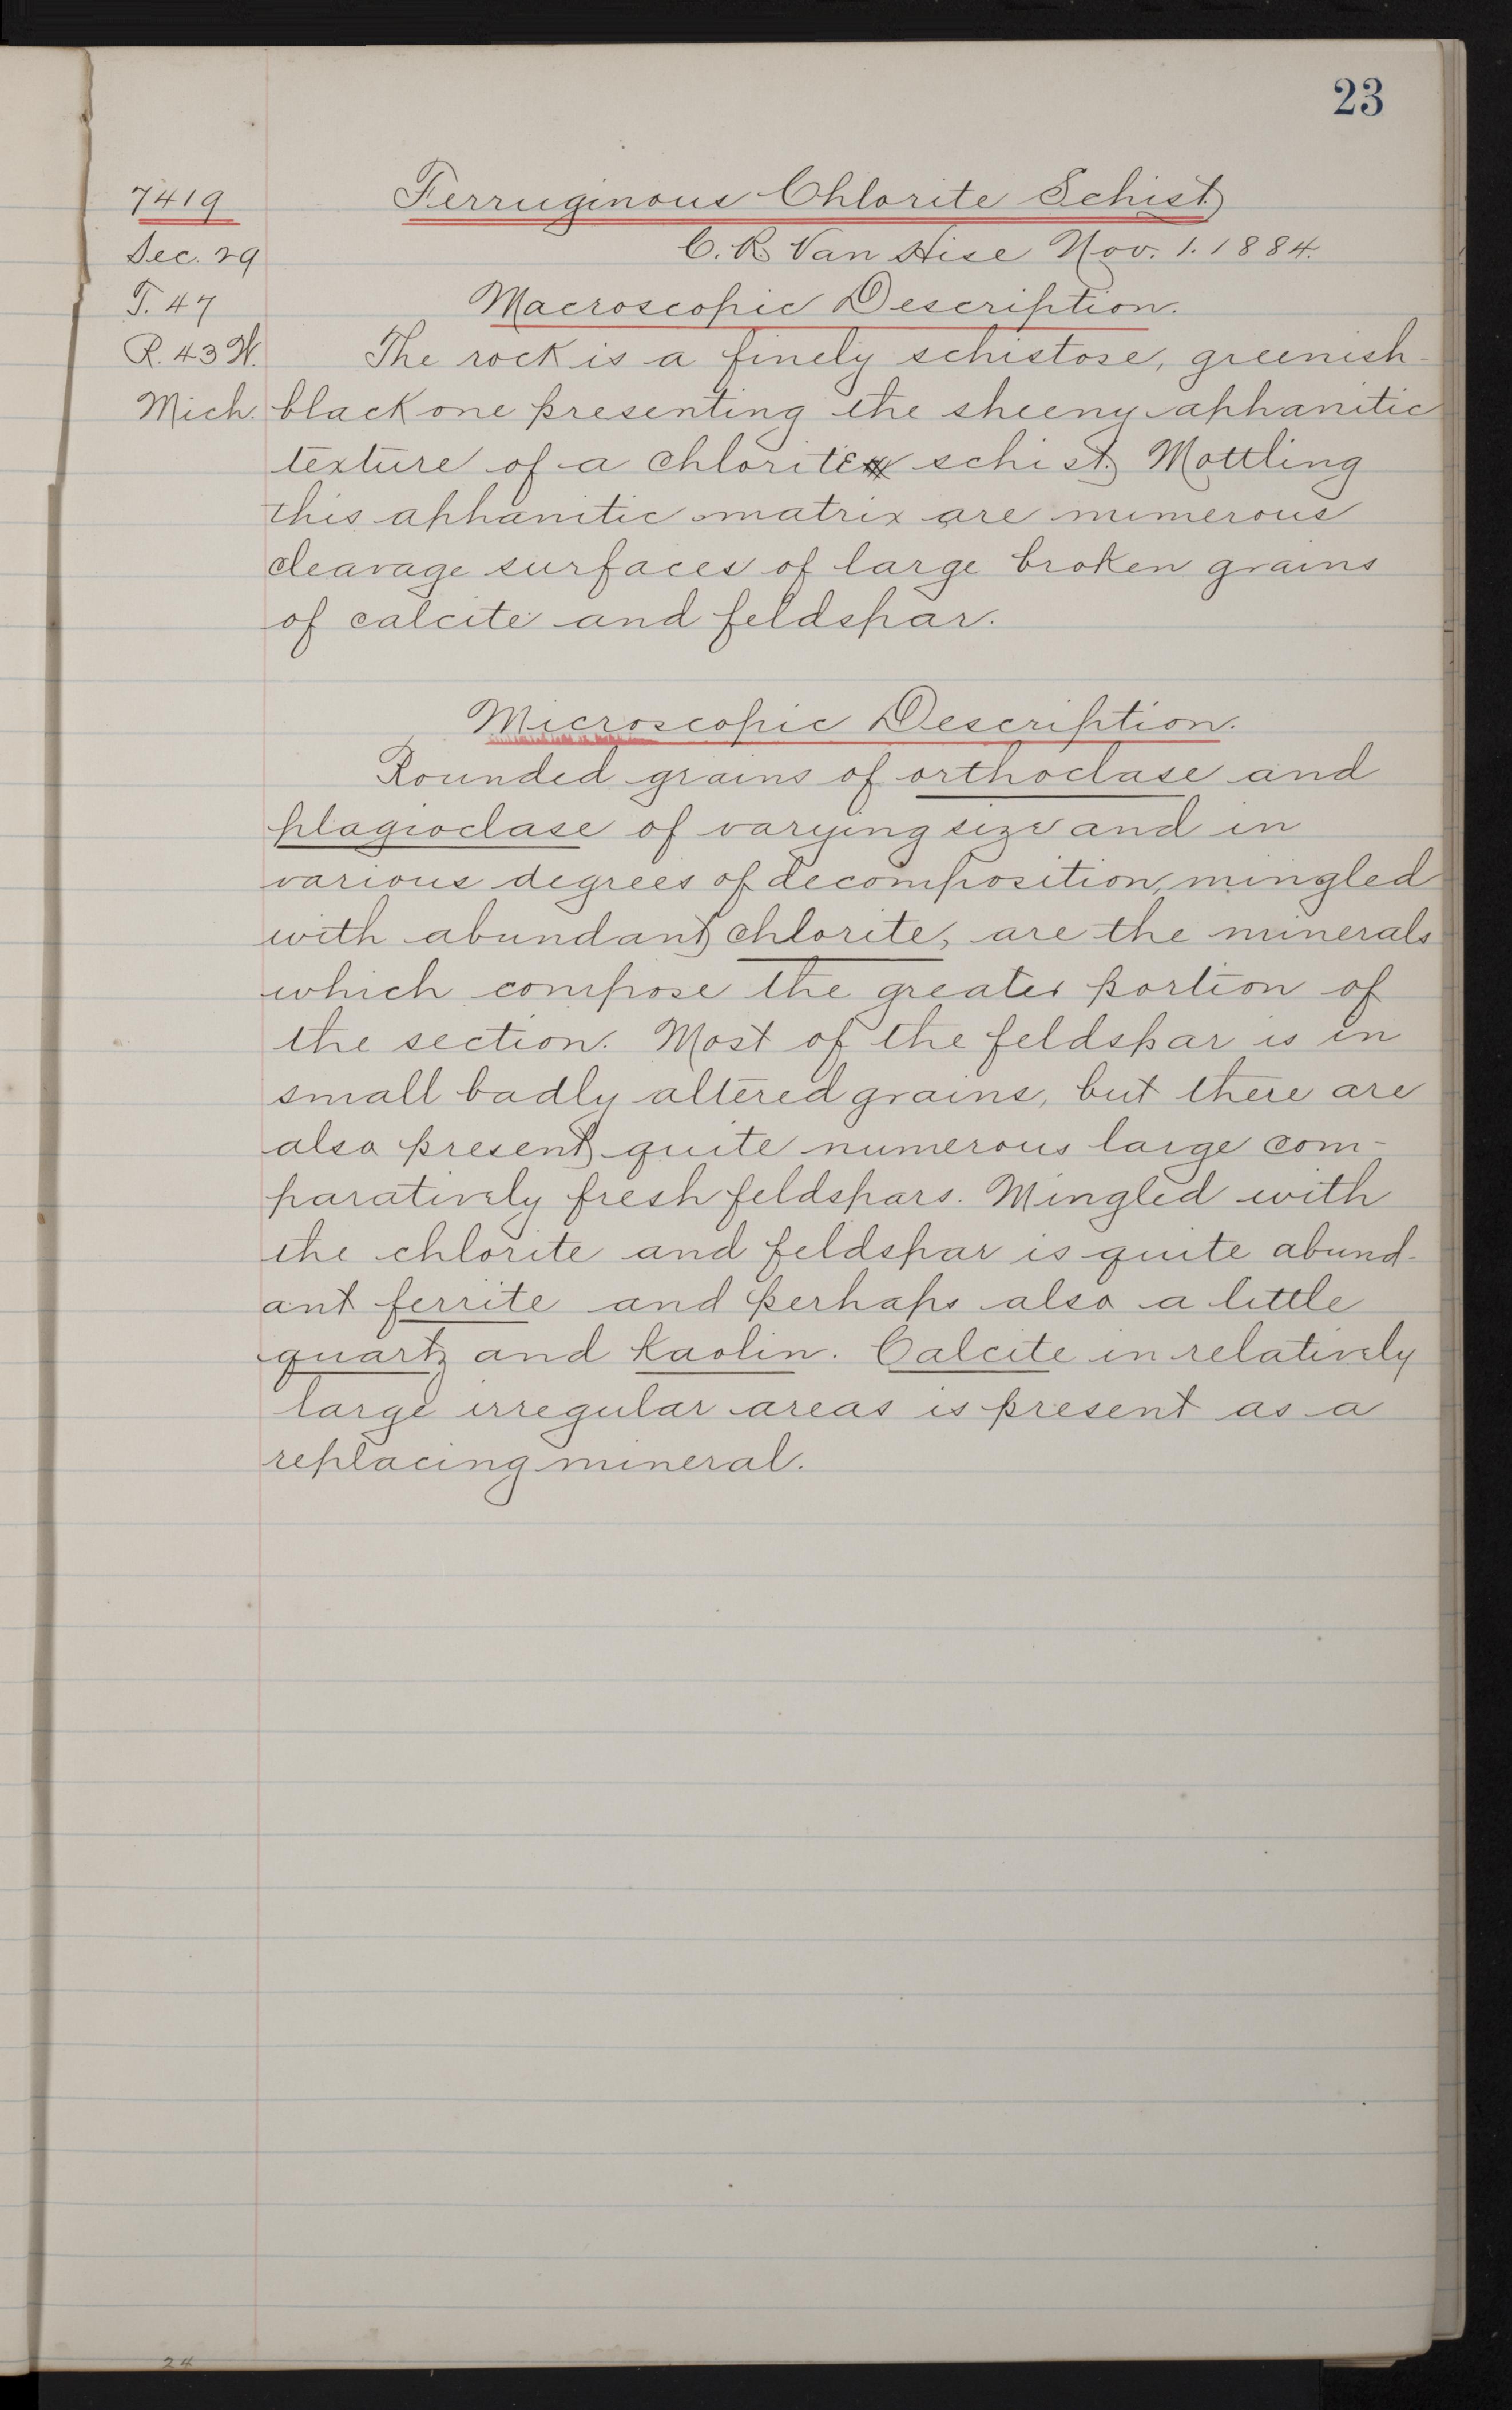 23
7419
Ferruginous Chlorite Schist
Sec. 29
C. R. Van Hise Nov. 1. 1884.
T. 47
Macroscopic Description.
R. 43 W.
The rock is a finely schistose, greenish-
Mich.
black one presenting the sheeny aphanitic
texture of a chlorite schist. Mottling
this aphanitic matrix are numerous
cleavage surfaces of large broken grains
of calcite and feldspar.
Microscopic Description.
Rounded grains of orthoclase and
plagioclase of varying size and in
various degrees of decomposition, mingled
with abundant chlorite, are the minerals
which compose the greater portion of
the section. Most of the feldspar is in
small badly altered grains, but there are
also present quite numerous large com-
paratively fresh feldspars. Mingled with
the chlorite and feldspar is quite abund-
ant ferrite and perhaps also a little
quartz and kaolin. Calcite in relatively
large irregular areas is present as a
replacing mineral.
24